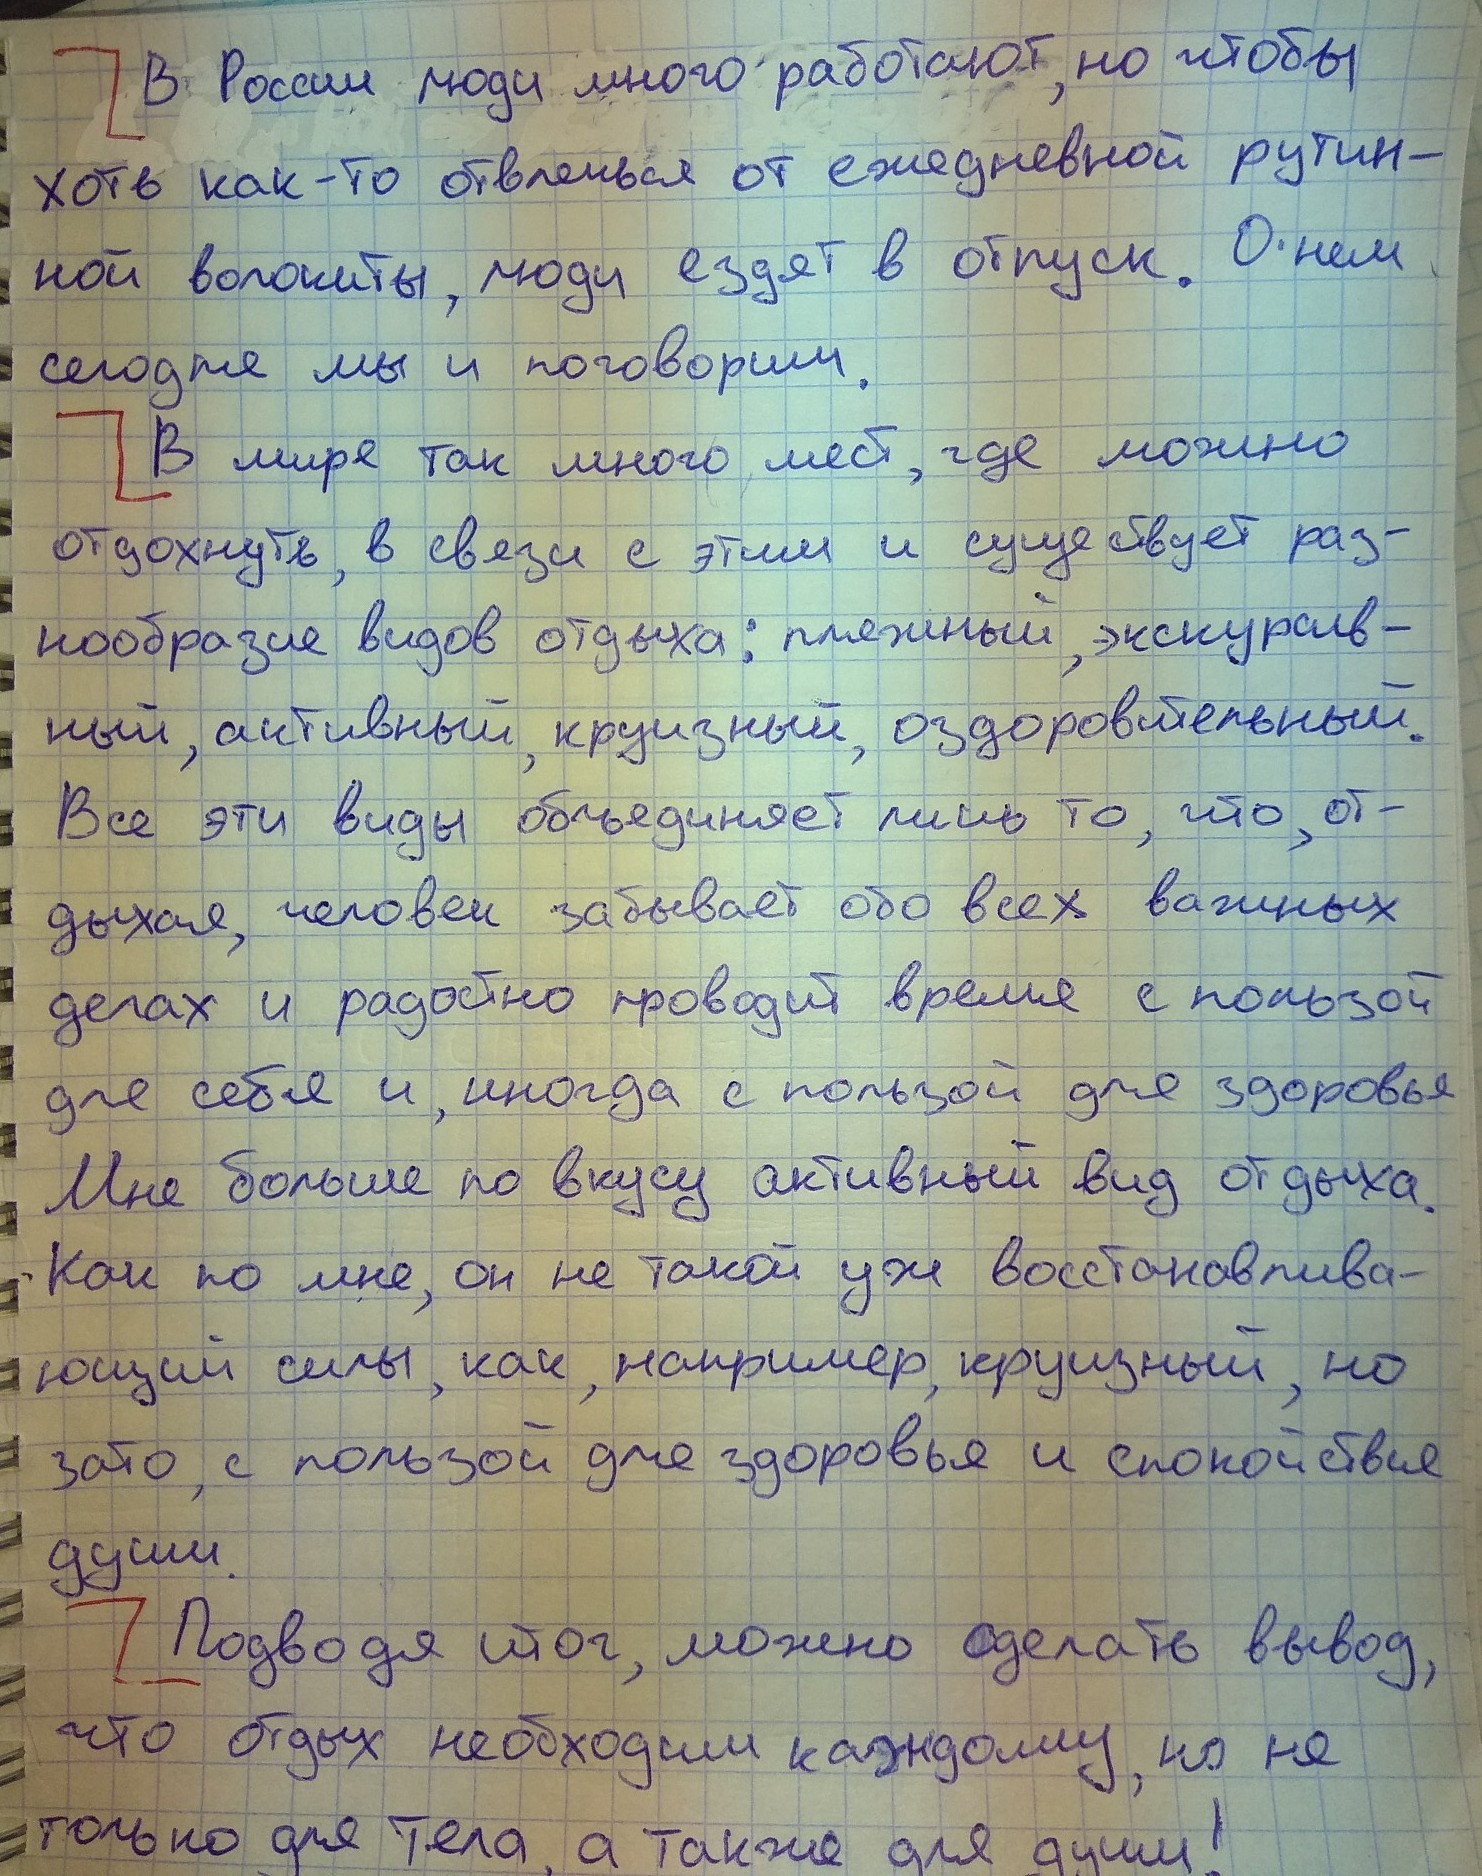 В России люди много работают, но чтобы
хоть как-то отвлечься от ежедневной рутин-
ной волокиты, люди ездят в отпуск. О нем
сегодня мы и поговорим.
В мире так много мест, где можно
отдохнуть, в связи с этим и существует раз-
нообразие видов отдыха: пляжный, экскурсив-
ный, активный, круизный, оздоровительный.
Все эти виды объединяет лишь то, что, от-
дыхая, человек забывает обо всех важных
делах и радостно проводит время с пользой
для себя и, иногда с пользой для здоровья
Мне больше по вкусу активный вид отдыха.
Как по мне, он не такой уж восстанавлива-
ющий силы, как, например, круизный, но
зато, с пользой для здоровья и спокойствия
души.
Подводя итог, можно сделать вывод,
что отдых необходим каждому, но не
только для тела, а также для души!